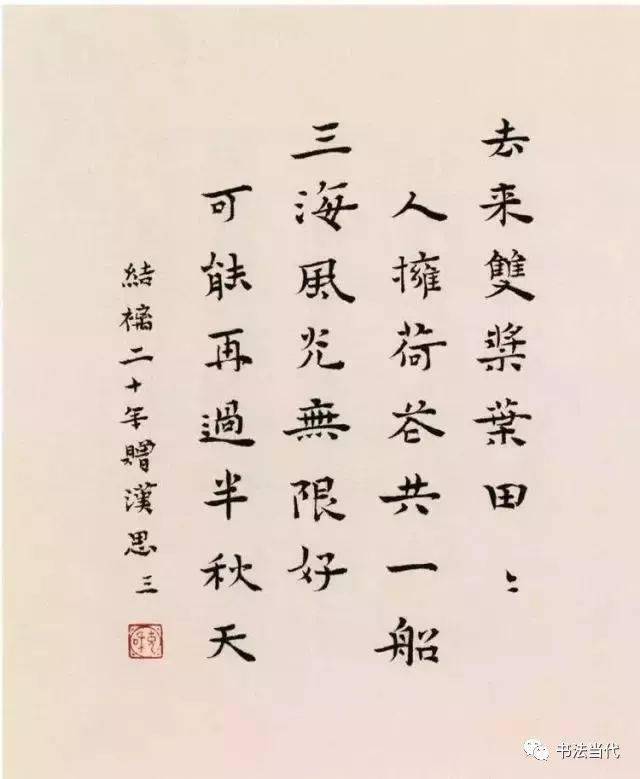 去来雙槳葉田〻
人擁荷花共一船
三海風光無限好
可能再過半秋天
結褵二十年贈漢思 三
书法当代